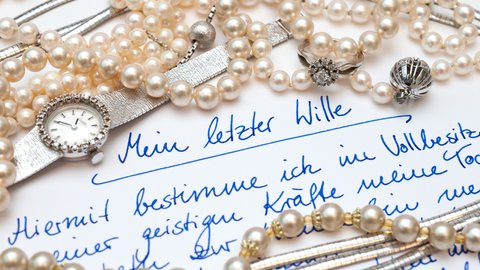 Mein letzter Wille
Hiermit bestimme ich im Vollbesitz
meiner geistigen Kräfte meine Toc
zur me